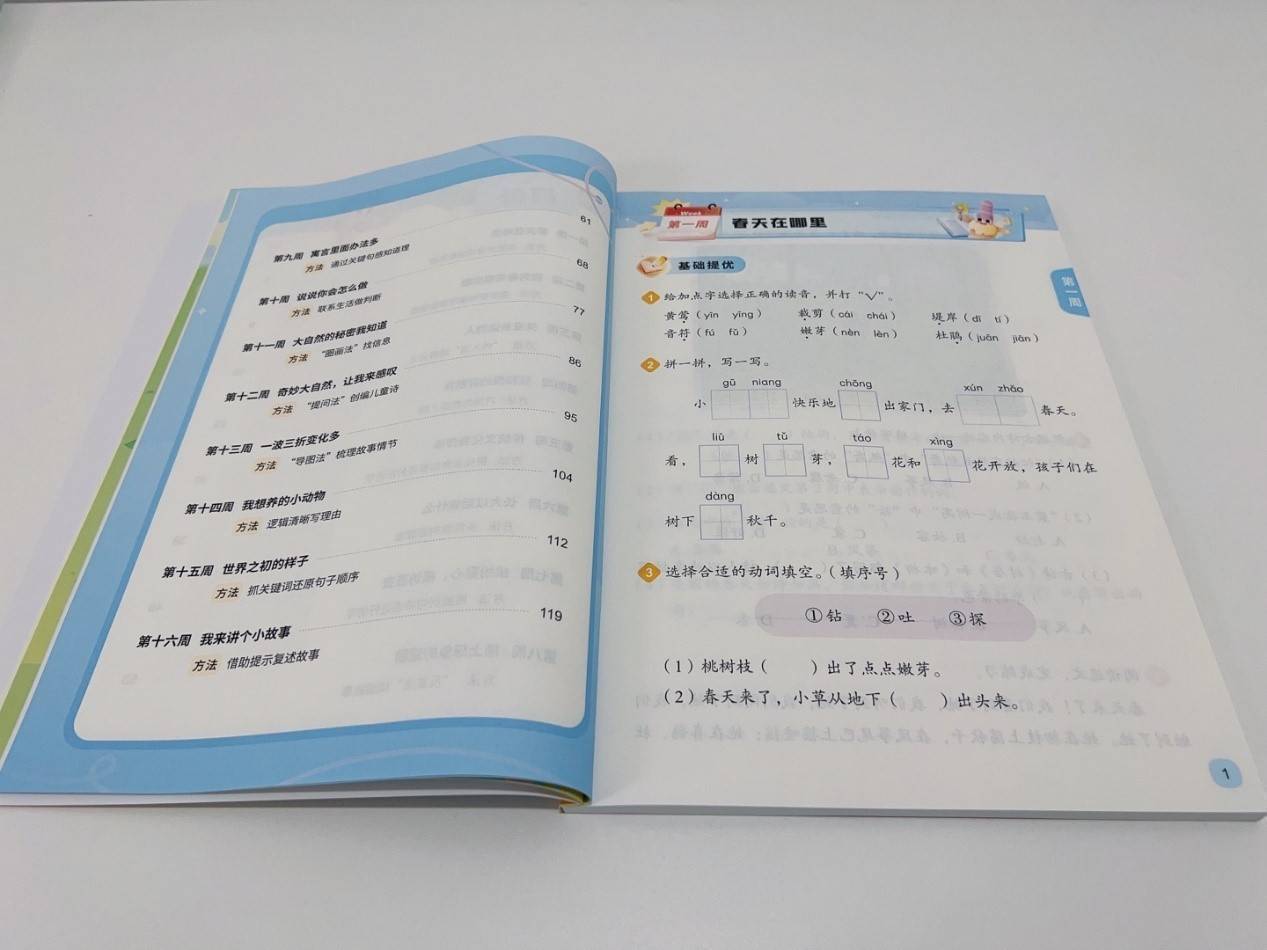 第九周 寓言里面办法多 61
方法 通过关键句感知道理
第十周 说说你会怎么做 68
方法 联系生活做判断
第十一周 大自然的秘密我知道 77
方法 “圈画法”找信息
第十二周 奇妙大自然，让我来感叹 86
方法 “提问法”创编儿童诗
第十三周 一波三折变化多 95
方法 “导图法”梳理故事情节
第十四周 我想养的小动物 104
方法 逻辑清晰写理由
第十五周 世界之初的样子 112
方法 抓关键词还原句子顺序
第十六周 我来讲个小故事 119
方法 借助提示复述故事
Week
第一周 春天在哪里
第一周
基础提优
1 给加点字选择正确的读音，并打“√”。
黄莺（yīn yīng） 裁剪（cái chái） 堤岸（dī tí）
音符（fú fǔ） 嫩芽（nèn lèn） 杜鹃（juān jiān）
2 拼一拼，写一写。
gū niang chōng xún zhǎo
小 快乐地 出家门，去 春天。
liǔ tǔ táo xìng
看， 树 芽， 花和 花开放，孩子们在
dàng
树下 秋千。
3 选择合适的动词填空。（填序号）
①钻 ②吐 ③探
（1）桃树枝（ ）出了点点嫩芽。
（2）春天来了，小草从地下（ ）出头来。
1